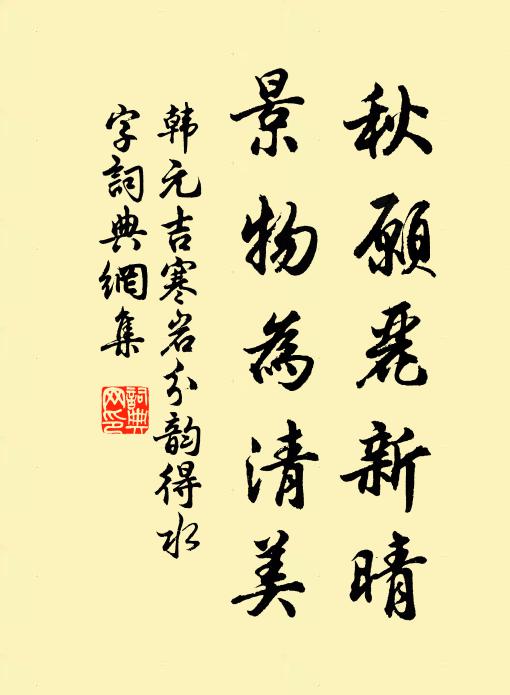 秋願麗新晴
景物為清美
韩元吉寒岩分韵得水
字詞典網集
詞典网印